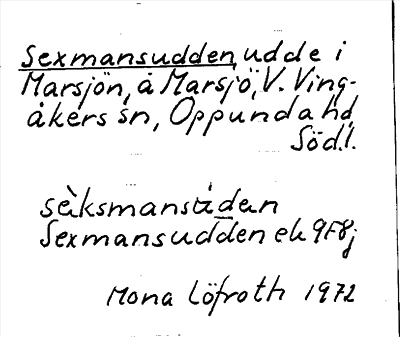 Sexmansudden, udde i
Marsjön, å Marsjö, V. Ving-
åkers sn, Oppunda hd,
Söd.l.
Sexmansudden ek 9F8j
Mona Löfroth 1972